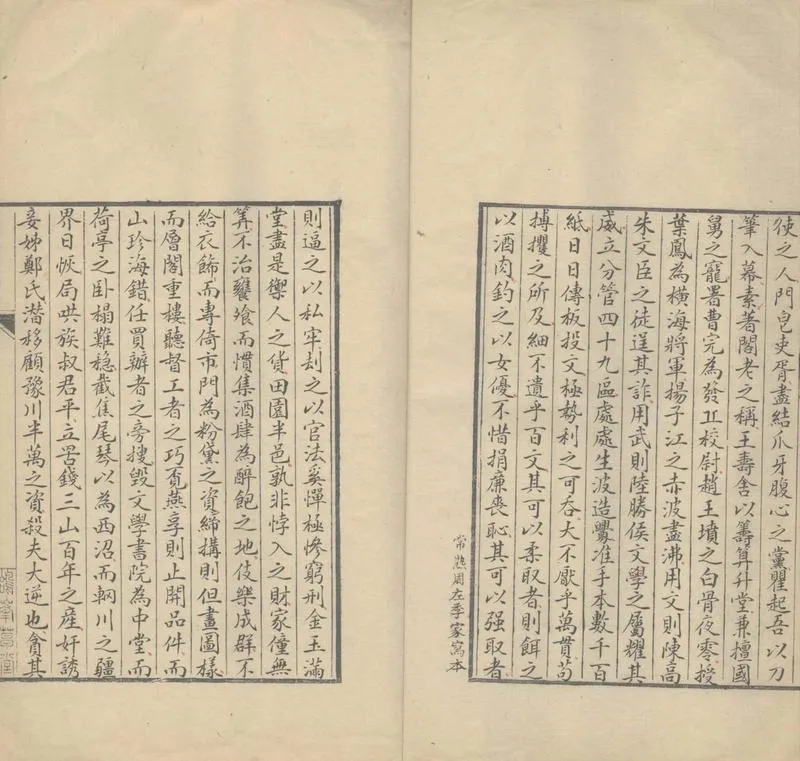 使之人門皂吏胥盡結爪牙腹心之黨瞿起吾以刀
筆入幕素著閣老之稱王壽舍以籌算升堂兼擅國
舅之寵署曹完為發丘校尉趙王墳之白骨夜零授
葉鳳為橫海將軍揚子江之赤波盡沸用文則陳高
朱文臣之徒逞其詐用武則陸勝侯文學之屬耀其
威立分管四十九區處處生波造釁准手本數千百
紙日日傳板投文極勢利之可吞大不厭乎萬貫苟
搏攫之所及細不遺乎百文其可以柔取者則餌之
以酒肉釣之以女優不惜捐廉喪恥其可以强取者
常熟周左季家寫本
則逼之以私牢刦之以官法奚憚極慘窮刑金玉滿
堂盡是禦人之貨田園半邑孰非悖入之財家僮無
筭不治饔飧而慣集酒肆為醉飽之地伎樂成群不
給衣飾而專倚市門為粉黛之資締搆則但畫圖樣
而層閣重樓聽督工者之巧覔燕享則止開品件而
山珍海錯任買辦者之旁搜毀文學書院為中堂而
荷亭之卧榻難穩截焦尾琴以為西沼而輞川之疆
界日恢局哄族叔君平立罟錢三山百年之產奸誘
妾姊鄭氏潛移顧豫川半萬之資殺夫大逆也貪其